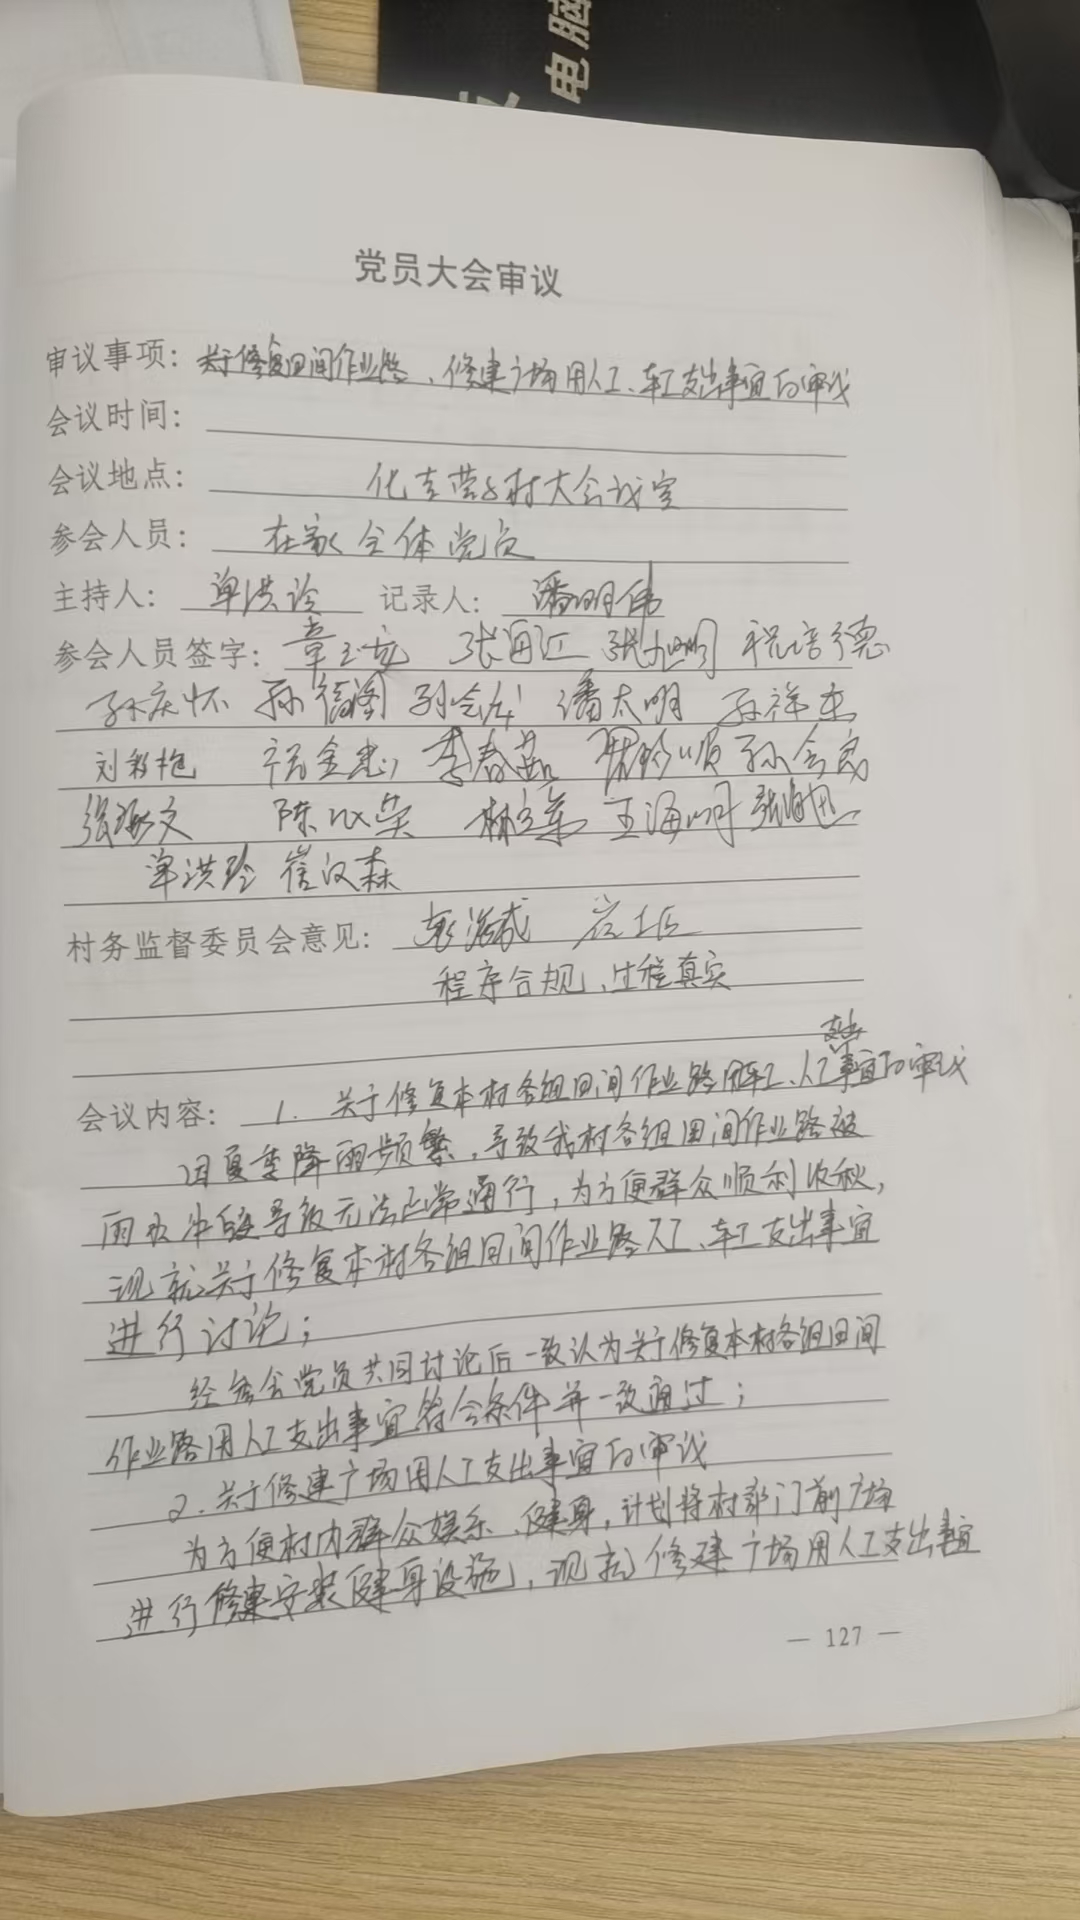 电脑
党员大会审议
审议事项：关于修复田间作业路、修建广场用人工、车工支出事宜的审议
会议时间：
会议地点：化吉营子村大会议室
参会人员：在家全体党员
主持人：单洪玲 记录人：潘明伟
参会人员签字：章玉龙 张海江 张旭明 祝培德
孙庆怀 孙 潘太明 孙祥杰
刘 李春茹 孙会良
张海文 陈 荣 林 王海明 张海旭
单洪玲 崔汉森
村务监督委员会意见：
程序合规、过程真实
支出
会议内容：1. 关于修复本村各组田间作业路用车工、人工事宜的审议
因夏季降雨频繁，导致我村各组田间作业路被
雨水冲毁导致无法正常通行，为方便群众顺利收秋，
现就关于修复本村各组田间作业路人工、车工支出事宜
进行讨论；
经参会党员共同讨论后一致认为关于修复本村各组田间
作业路用人工支出事宜符合条件并一致通过；
2. 关于修建广场用人工支出事宜的审议
为方便村内群众娱乐、健身，计划将村部门前广场
进行修建安装健身设施，现就修建广场用人工支出事宜
— 127 —